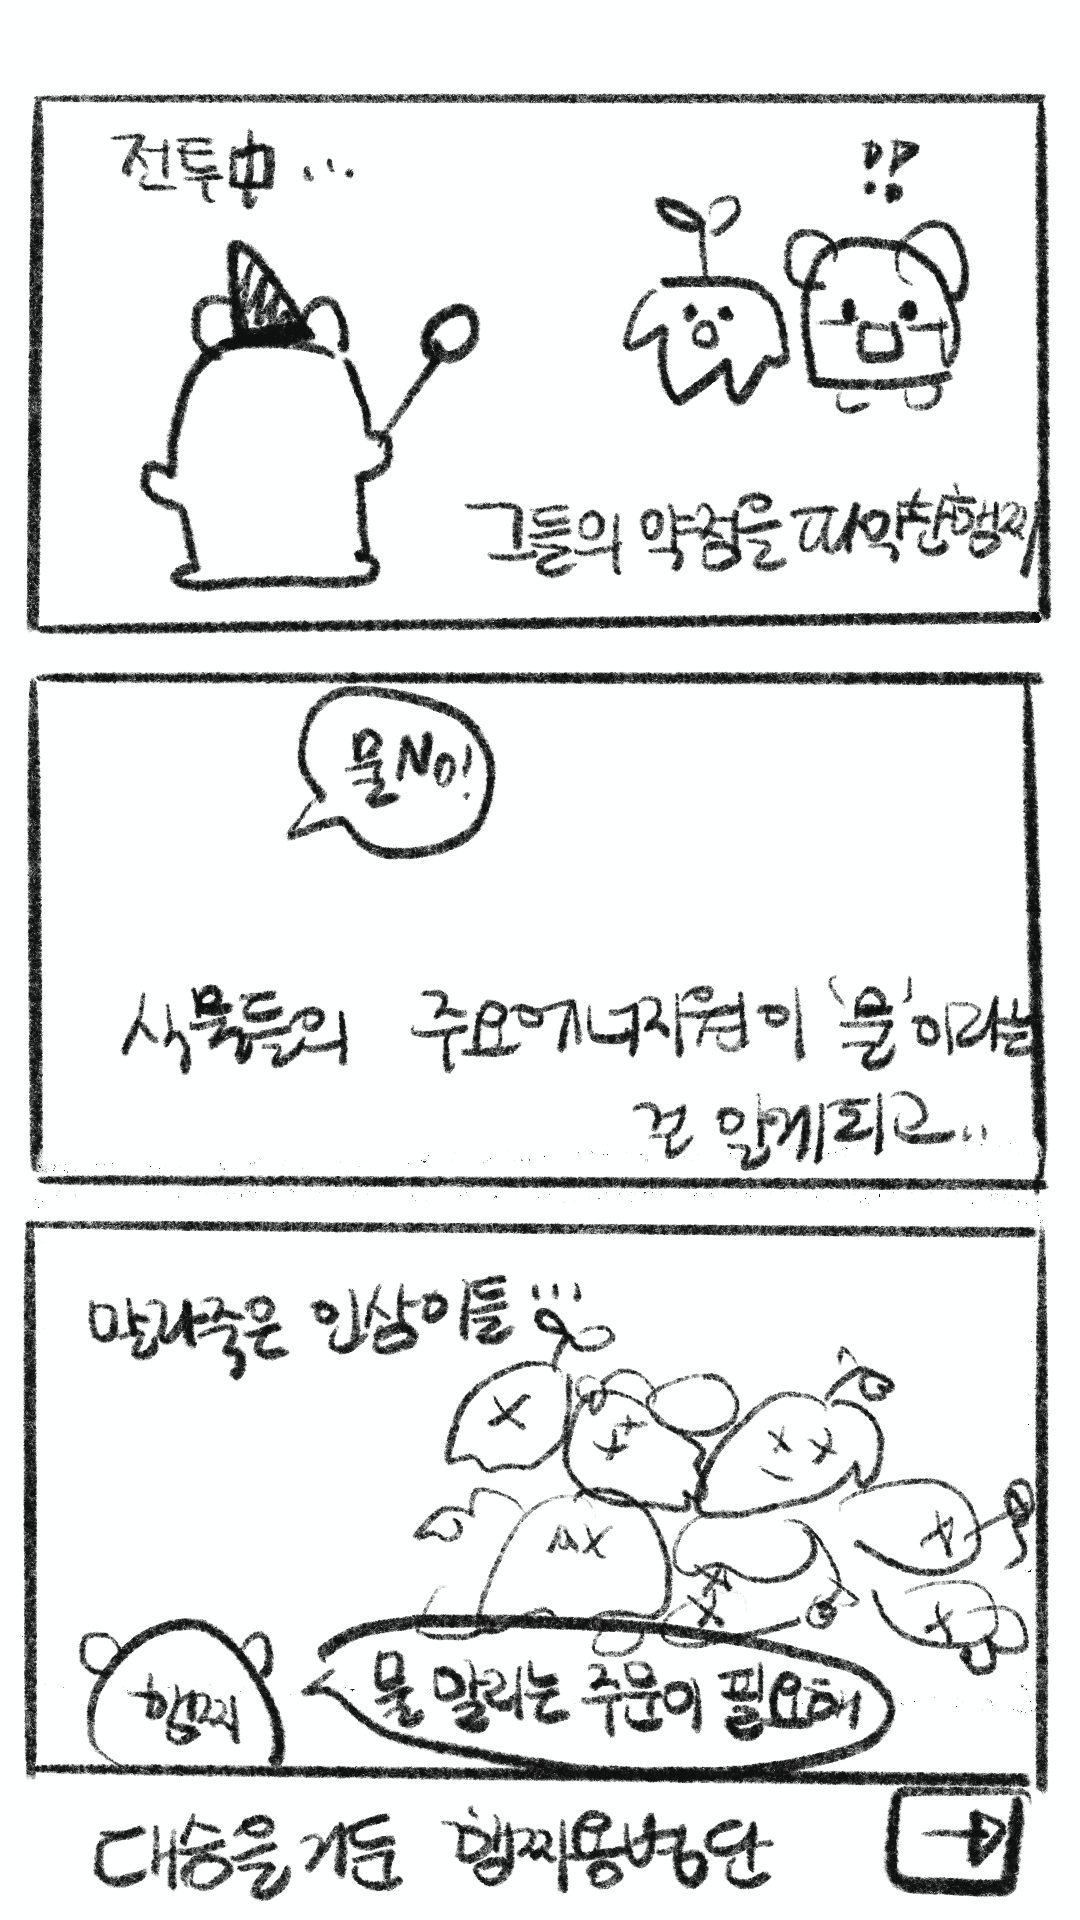 전투中...
!?
그들의 약점을 파악한 햄찌
물 No!
식물들의 주요에너지원이 '물'이라는
건 알게되고..
말라죽은 인삼이들...
햄찌
물 말리는 주문이 필요해
대승을 거둔 햄찌용병단